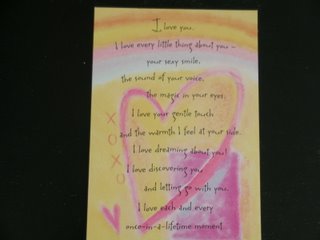 I love you.
I love every little thing about you –
your sexy smile,
the sound of your voice,
the magic in your eyes.
I love your gentle touch
and the warmth I feel at your side.
I love dreaming about you!
I love discovering you
and letting go with you.
I love each and every
once-in-a-lifetime moment
XOXO